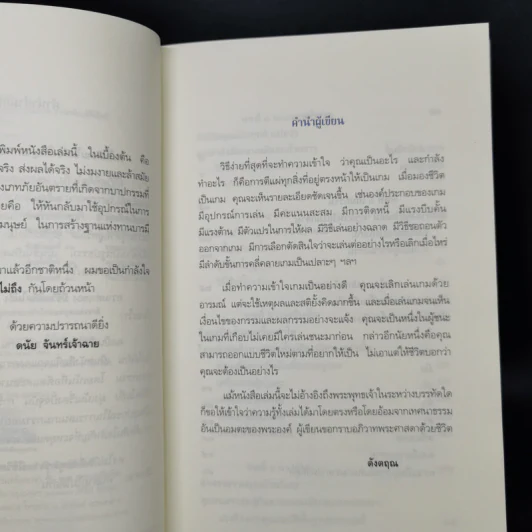 พิมพ์หนังสือเล่มนี้ ในเบื้องต้น คือ
จริง ส่งผลได้จริง ไม่งมงายและล้ำสมัย
งเภทภัยอันตรายที่เกิดจากบาปกรรมที่
ยคือ ให้หันกลับมาใช้อุปกรณ์ในการ
มนุษย์ ในการสร้างฐานแห่งทานบารมี
าแล้วอีกชาติหนึ่ง ผมขอเป็นกำลังใจ
ไม่ถึง กันโดยถ้วนหน้า
ด้วยความปรารถนาดียิ่ง
ดนัย จันทร์เจ้าฉาย
คำนำผู้เขียน
วิธีง่ายที่สุดที่จะทำความเข้าใจ ว่าคุณเป็นอะไร และกำลัง
ทำอะไร ก็คือการตีแผ่ทุกสิ่งที่อยู่ตรงหน้าให้เป็นเกม เมื่อมองชีวิต
เป็นเกม คุณจะเห็นรายละเอียดชัดเจนขึ้น เช่นองค์ประกอบของเกม
มีอุปกรณ์การเล่น มีคะแนนสะสม มีการติดหนี้ มีแรงบีบคั้น
มีแรงต้าน มีตัวแปรในการให้ผล มีวิธีเล่นอย่างฉลาด มีวิธีขอถอนตัว
ออกจากเกม มีการเลือกตัดสินใจว่าจะเล่นต่ออย่างไรหรือเลิกเมื่อไหร่
มีลำดับขั้นการคลี่คลายเกมเป็นเปลาะๆ ฯลฯ
เมื่อทำความเข้าใจเกมเป็นอย่างดี คุณจะเลิกเล่นเกมด้วย
อารมณ์ แต่จะใช้เหตุผลและสติยั้งคิดมากขึ้น และเมื่อเล่นเกมจนเห็น
เงื่อนไขของกรรมและผลกรรมอย่างจะแจ้ง คุณจะเป็นหนึ่งในผู้ชนะ
ในเกมที่เกือบไม่เคยมีใครเล่นชนะมาก่อน กล่าวอีกนัยหนึ่งคือคุณ
สามารถออกแบบชีวิตใหม่ตามที่อยากให้เป็น ไม่เอาแต่ให้ชีวิตบอกว่า
คุณจะต้องเป็นอย่างไร
แม้หนังสือเล่มนี้จะไม่อ้างอิงถึงพระพุทธเจ้าในระหว่างบรรทัดใด
ก็ขอให้เข้าใจว่าความรู้ทั้งเล่มได้มาโดยตรงหรือโดยอ้อมจากเทศนาธรรม
อันเป็นอมตะของพระองค์ ผู้เขียนขอกราบอภิวาทพระศาสดาด้วยชีวิต
ดังตฤณ